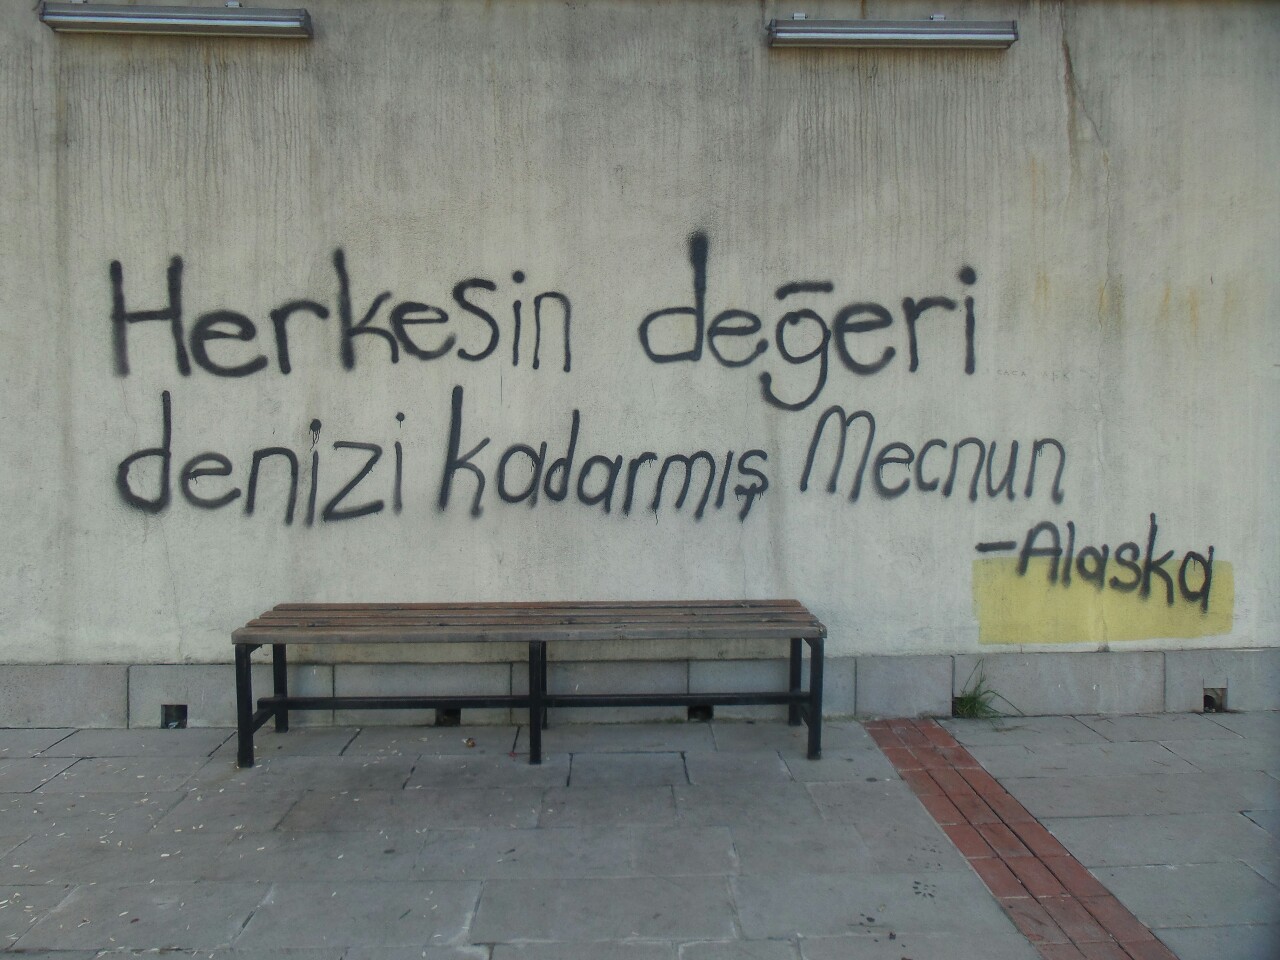 Herkesin değeri
denizi kadarmış Mecnun
-Alaska